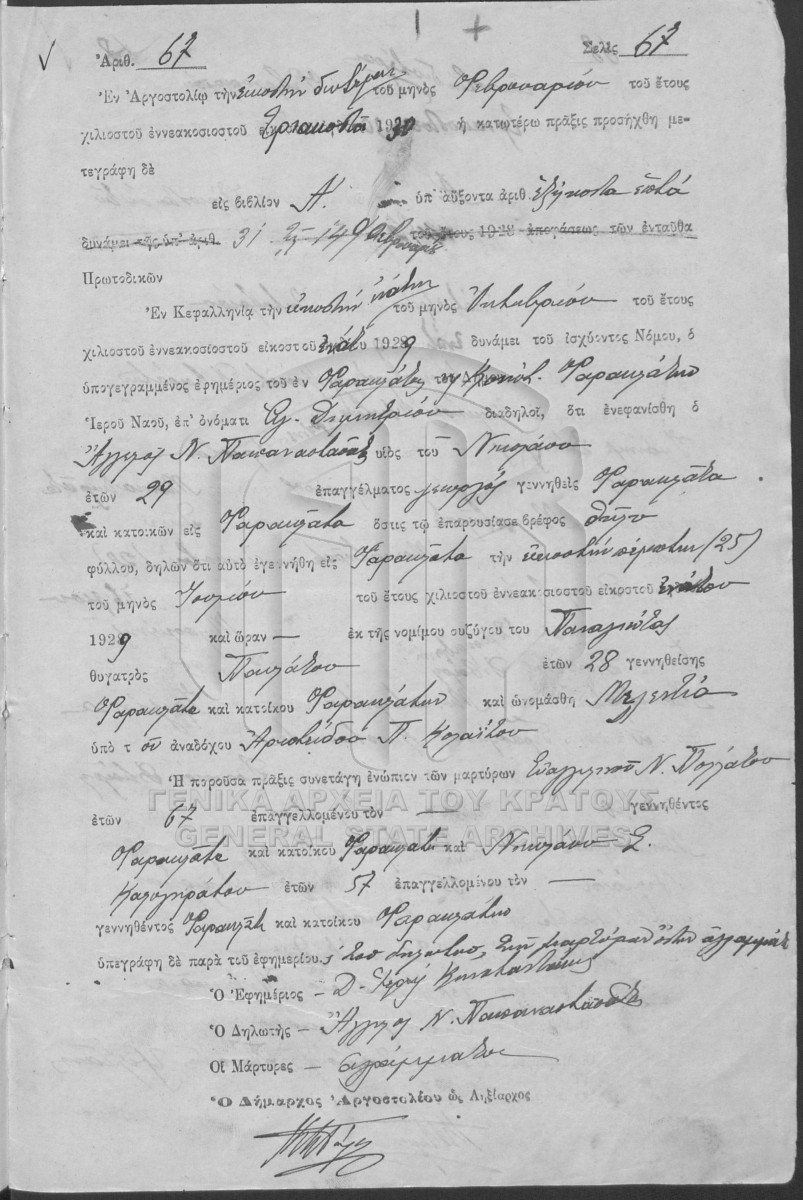 Ἀριθ. 67 Σελὶς 67
Ἐν Ἀργοστολίῳ τὴν εἰκοστὴν δευτέραν τοῦ μηνὸς Φεβρουαρίου τοῦ ἔτους
χιλιοστοῦ ἐννεακοσιοστοῦ τριακοστοῦ 1930 ἡ κατωτέρω πρᾶξις προσήχθη με-
τεγράφη δὲ
εἰς βιβλίον Α. ὑπ' αὔξοντα ἀριθ. ἑξήκοντα ἑπτά
δυνάμει τῆς ὑπ' ἀριθ. 31 τοῦ ἔτους 1928 ἀποφάσεως τῶν ἐνταῦθα
Πρωτοδικῶν
Ἐν Κεφαλληνίᾳ τὴν εἰκοστὴν ἐνάτην τοῦ μηνὸς Ὀκτωβρίου τοῦ ἔτους
χιλιοστοῦ ἐννεακοσιοστοῦ εἰκοστοῦ ἐνάτου 1929 δυνάμει τοῦ ἰσχύοντος Νόμου, ὁ
ὑπογεγραμμένος ἐφημέριος τοῦ ἐν Φαρακλάτα τῆς Κοινότ. Φαρακλάτων
Ἱεροῦ Ναοῦ, ἐπ' ὀνόματι Ἁγ. Δημητρίου διαδηλοῖ, ὅτι ἐνεφανίσθη ὁ
Ἄγγελος Ν. Παπαναστασάτος υἱὸς τοῦ Νικολάου
ἐτῶν 29 ἐπαγγέλματος γεωργός γεννηθεὶς Φαρακλάτα
καὶ κατοικῶν εἰς Φαρακλάτα ὅστις τῷ ἐπαρουσίασε βρέφος θῆλυ
φύλλου, δηλῶν ὅτι αὐτὸ ἐγεννήθη εἰς Φαρακλάτα τὴν εἰκοστὴν πέμπτην (25)
τοῦ μηνὸς Ἰουνίου τοῦ ἔτους χιλιοστοῦ ἐννεακοσιοστοῦ εἰκοστοῦ ἐνάτου
1929 καὶ ὥραν — ἐκ τῆς νομίμου συζύγου του Παναγιώτας
θυγατρὸς Παυλάτου ἐτῶν 28 γεννηθείσης
Φαρακλάτα καὶ κατοίκου Φαρακλάτων καὶ ὠνομάσθη Μελεντία
ὑπὸ τοῦ ἀναδόχου Ἀριστείδου Π.
Ἡ παροῦσα πρᾶξις συνετάγη ἐνώπιον τῶν μαρτύρων Εὐαγγελινοῦ Ν.
ΓΕΝΙΚΑ ΑΡΧΕΙΑ ΤΟΥ ΚΡΑΤΟΥΣ
ἐτῶν 67 ἐπαγγελλομένου τὸν — γεννηθέντος
GENERAL STATE ARCHIVES
Φαρακλάτα καὶ κατοίκου Φαρακλάτα καὶ Νικολάου Σ.
Καλογηράτου ἐτῶν 57 ἐπαγγελλομένου τὸν —
γεννηθέντος Φαρακλάτα καὶ κατοίκου Φαρακλάτων
ὑπεγράφη δὲ παρὰ τοῦ ἐφημερίου, τοῦ δηλοῦντος, τῶν μαρτύρων ὄντων ἀγραμμάτων
Ὁ Ἐφημέριος –
Ὁ Δηλωτὴς – Ἄγγελος Ν. Παπαναστασάτος
Οἱ Μάρτυρες – ἀγράμματοι
Ὁ Δήμαρχος Ἀργοστολίου ὡς Ληξίαρχος